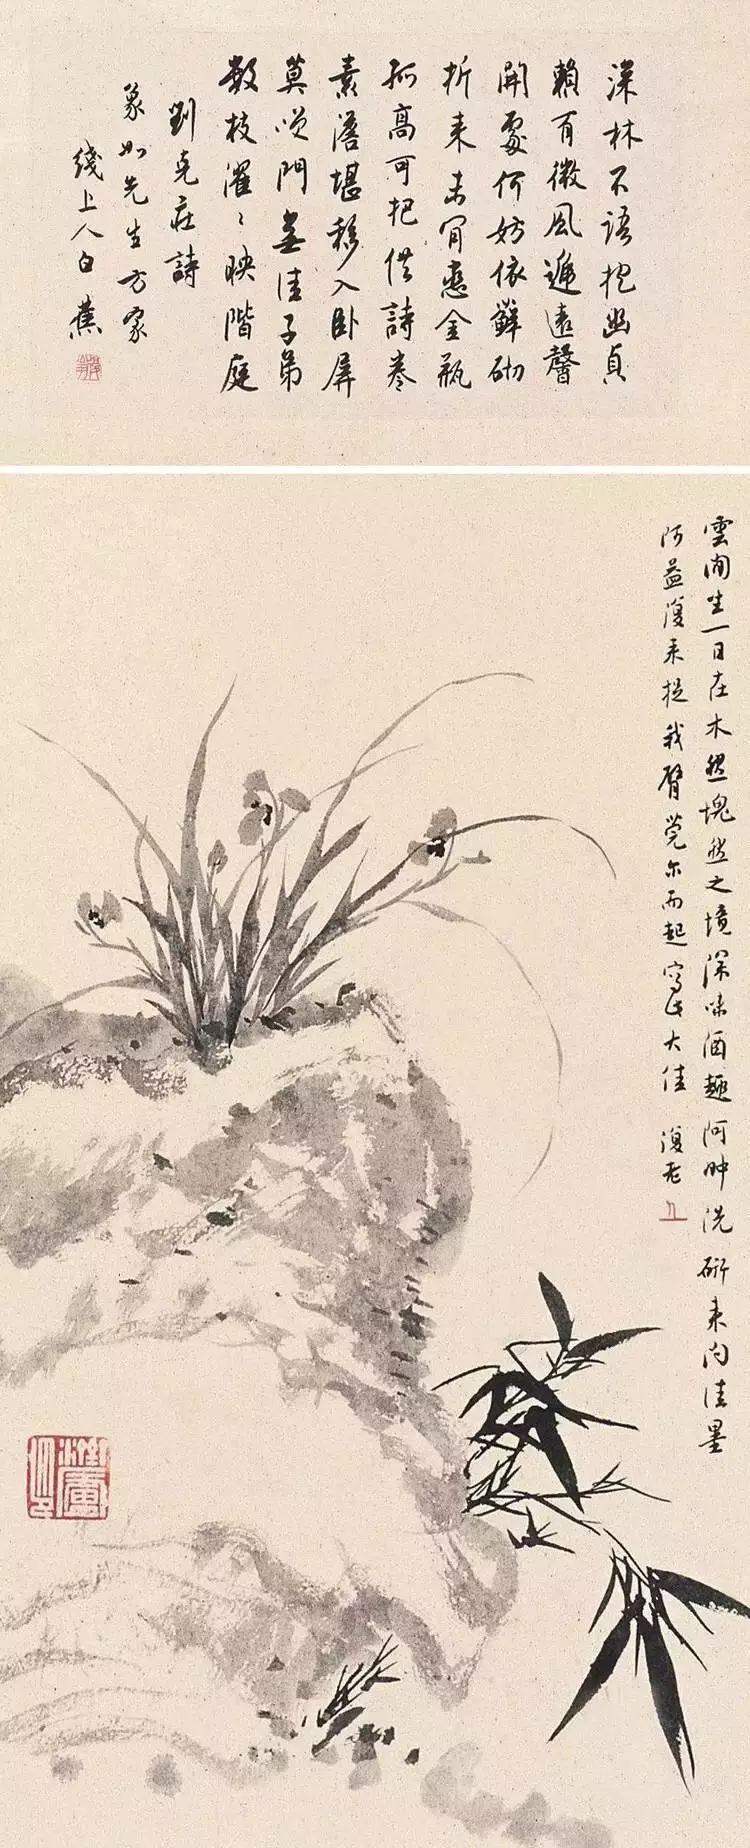 深林不語抱幽貞
賴有微風遞遠馨
開處何妨依蘚砌
折来未肯戀金瓶
孤高可挹供詩卷
素澹堪移入臥屏
莫咲門無佳子弟
數枝濯〻映階庭
劉克莊詩
象如先生方家
綫上人白蕉
雲間生一日在木然塊然之境深味酒趣阿洗研来佳墨
阿益復来捉我臂莞尔而起寫此大佳 復老